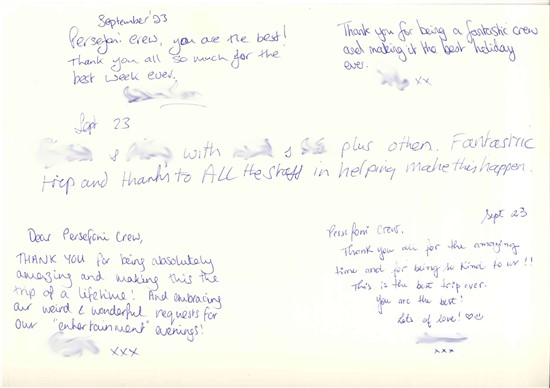 September '23
Persefoni Crew, you are the best!
Thank you all so much for the
best week ever.
Thank you for being a fantastic crew
and making it the best holiday
ever.
xx
Sept 23
& with & plus others. Fantastic
trip and thanks to ALL the staff in helping make this happen.
Dear Persefoni Crew,
THANK YOU for being absolutely
amazing and making this the
trip of a lifetime! And embracing
our weird & wonderful requests for
our "entertainment" evenings!
xxx
Sept 23
Persefoni Crew,
Thank you all for the amazing
time and for being so kind to us!!
This is the best trip ever.
You are the best!
Lots of love! ♡☺
xxx